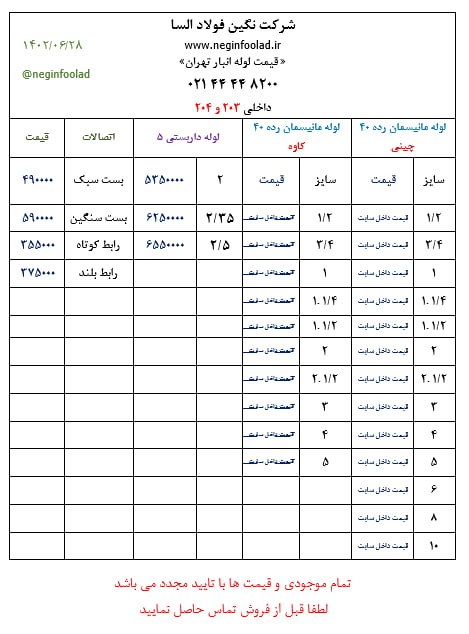 شرکت نگین فولاد السا
۱۴۰۲/۰۶/۲۸
www.neginfoolad.ir
@neginfoolad
«قیمت لوله انبار تهران»
۰۲۱ ۴۴ ۴۴ ۸۲۰۰
داخلی ۲۰۳ و ۲۰۴
لوله مانیسمان رده ۴۰ چینی لوله مانیسمان رده ۴۰ کاوه لوله داربستی ۵ اتصالات قیمت
سایز قیمت سایز قیمت ۲ ۵۳۵۰۰۰۰ بست سبک ۴۹۰۰۰۰
۱/۲ قیمت داخل سایت ۱/۲ قیمت داخل سایت ۲/۳۵ ۶۲۵۰۰۰۰ بست سنگین ۵۹۰۰۰۰
۳/۴ قیمت داخل سایت ۳/۴ قیمت داخل سایت ۲/۵ ۶۵۵۰۰۰۰ رابط کوتاه ۳۵۵۰۰۰
۱ قیمت داخل سایت ۱ قیمت داخل سایت رابط بلند ۳۷۵۰۰۰
۱.۱/۴ قیمت داخل سایت ۱.۱/۴ قیمت داخل سایت
۱.۱/۲ قیمت داخل سایت ۱.۱/۲ قیمت داخل سایت
۲ قیمت داخل سایت ۲ قیمت داخل سایت
۲.۱/۲ قیمت داخل سایت ۲.۱/۲ قیمت داخل سایت
۳ قیمت داخل سایت ۳ قیمت داخل سایت
۴ قیمت داخل سایت ۴ قیمت داخل سایت
۵ قیمت داخل سایت ۵ قیمت داخل سایت
۶ قیمت داخل سایت
۸ قیمت داخل سایت
۱۰ قیمت داخل سایت
تمام موجودی و قیمت ها با تایید مجدد می باشد
لطفا قبل از فروش تماس حاصل نمایید